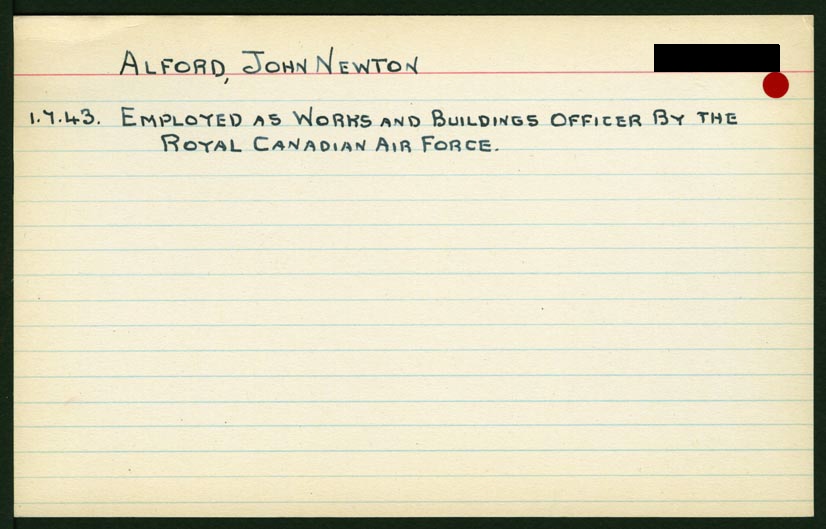 ALFORD, JOHN NEWTON
1.7.43. EMPLOYED AS WORKS AND BUILDINGS OFFICER BY THE
ROYAL CANADIAN AIR FORCE.